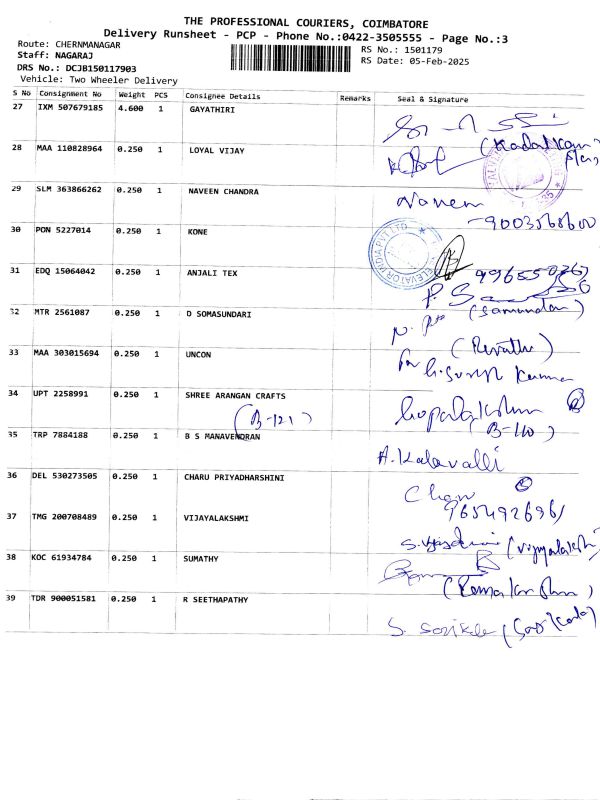 THE PROFESSIONAL COURIERS, COIMBATORE
Delivery Runsheet - PCP - Phone No.:0422-3505555 - Page No.:3
Route: CHERNMANAGAR
Staff: NAGARAJ
DRS No.: DCJB150117903
Vehicle: Two Wheeler Delivery
RS No.: 1501179
RS Date: 05-Feb-2025
S No Consignment No Weight PCS Consignee Details Remarks Seal & Signature
27 IXM 507679185 4.600 1 GAYATHIRI
28 MAA 110828964 0.250 1 LOYAL VIJAY
29 SLM 363866262 0.250 1 NAVEEN CHANDRA Naveen
9003568600
30 PON 5227014 0.250 1 KONE
31 EDQ 15064042 0.250 1 ANJALI TEX
32 MTR 2561087 0.250 1 D SOMASUNDARI
33 MAA 303015694 0.250 1 UNCON (Revathi)
for
34 UPT 2258991 0.250 1 SHREE ARANGAN CRAFTS
(B-121) (B-110)
35 TRP 7884188 0.250 1 B S MANAVENDRAN A. Kalavalli
36 DEL 530273505 0.250 1 CHARU PRIYADHARSHINI
37 TMG 200708489 0.250 1 VIJAYALAKSHMI
38 KOC 61934784 0.250 1 SUMATHY
39 TDR 900051581 0.250 1 R SEETHAPATHY